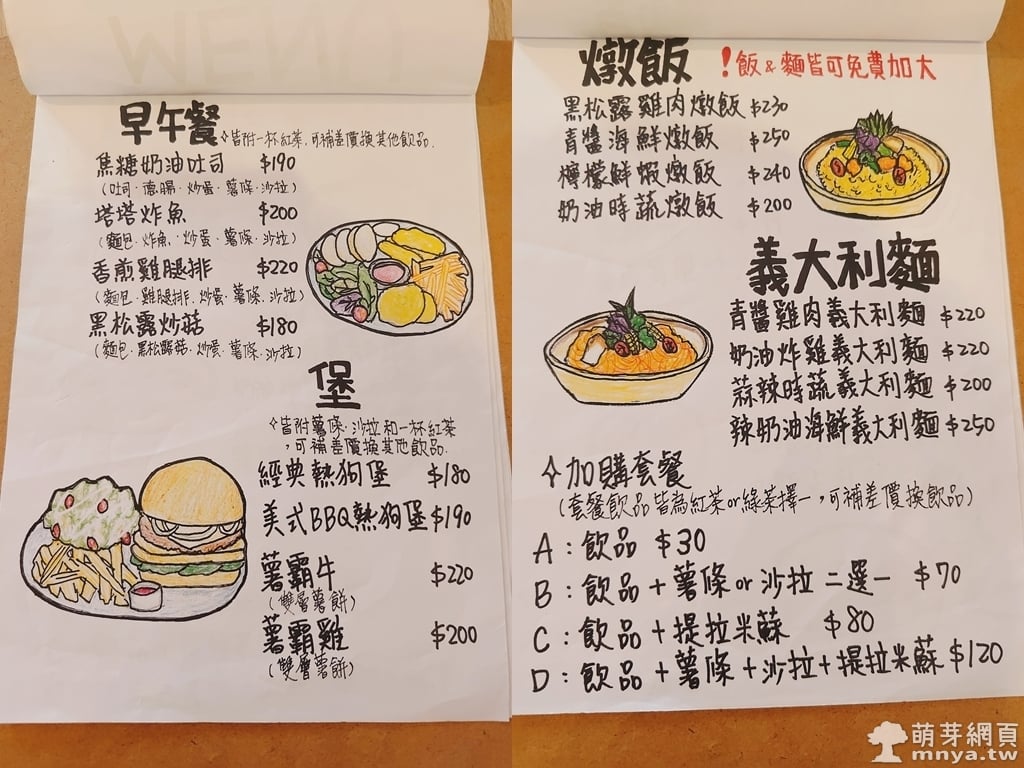 早午餐 ✧皆附一杯紅茶.可補差價換其他飲品.
焦糖奶油吐司 $190
(吐司·德腸·炒蛋·薯條·沙拉)
塔塔炸魚 $200
(麵包·炸魚·炒蛋·薯條·沙拉)
香煎雞腿排 $220
(麵包·雞腿排.炒蛋·薯條.沙拉)
黑松露炒菇 $180
(麵包·黑松露菇·炒蛋·薯條·沙拉)
堡
✧皆附薯條·沙拉和一杯紅茶
,可補差價換其他飲品.
經典熱狗堡 $180
美式BBQ熱狗堡 $190
薯霸牛 $220
(雙層薯餅)
薯霸雞 $200
(雙層薯餅)
燉飯 !飯&麵皆可免費加大
黑松露雞肉燉飯 $230
青醬海鮮燉飯 $250
檸檬鮮蝦燉飯 $240
奶油時蔬燉飯 $200
義大利麵
青醬雞肉義大利麵 $220
奶油炸雞義大利麵 $220
蒜辣時蔬義大利麵 $200
辣奶油海鮮義大利麵 $250
✧加購套餐
(套餐飲品皆為紅茶or綠茶擇一,可補差價換飲品)
A:飲品 $30
B:飲品+薯條or沙拉 二選一 $70
C:飲品+提拉米蘇 $80
D:飲品+薯條+沙拉+提拉米蘇 $120
萌芽網頁
mnya.tw